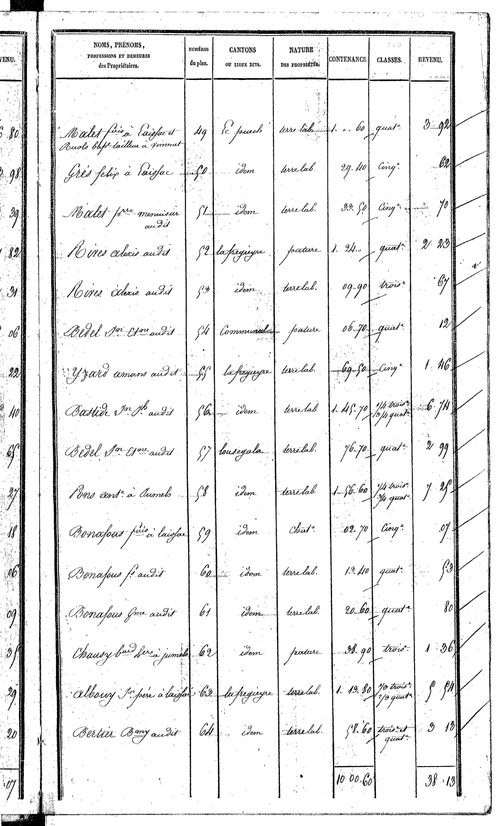 VENU.
NOMS, PRÉNOMS, PROFESSIONS ET DEMEURES des Propriétaires. NUMÉROS du plan. CANTONS OU LIEUX DITS. NATURE DES PROPRIÉTÉS. CONTENANCE CLASSES. REVENU.
80 Malet fcois à Laissac et 49 terre lab. 1. ". 60 quat. 3 92
98 Grés felix à Laissac 50 idem terre lab. 29.40 Cinq. 62
39 Malet menuisier 51 idem terre lab. 33.50 Cinq. 70
audit
82 Rives alexis audit 52 pature 1. 24. quat. 2 23
31 Rives alexis audit 53 idem terre lab. 09.90 trois. 67
06 Bedel audit 54 Communale pature 06.70 quat. 12
22 Yzard amans audit 55 terre lab. 69.50 Cinq. 1 46
40 Bastide audit 56 idem terre lab 1.45.70 1/4 trois. 3/4 quat. 6 74
65 Bedel audit 57 lousegala terre lab. 76.70 quat. 2 99
27 Pons ant. à 58 idem terre lab. 1.56.60 1/4 trois. 3/4 quat. 7 25
18 Bonafous à laissac 59 idem Chat. 02.70 Cinq. 07
06 Bonafous audit 60 idem terre lab. 13.40 quat. 53
09 Bonafous Gme audit 61 idem terre lab. 20.60 quat. 80
35 Chauzy à 62 idem pature 38.90 trois. 1 36
29 albouy père à laissac 63 terre lab. 1. 13.30 1/3 trois. 2/3 quat. 5 54
20 Bertier audit 64 idem terre lab. 58.60 trois. et quat. 3 13
.07 10 00.60 38.13